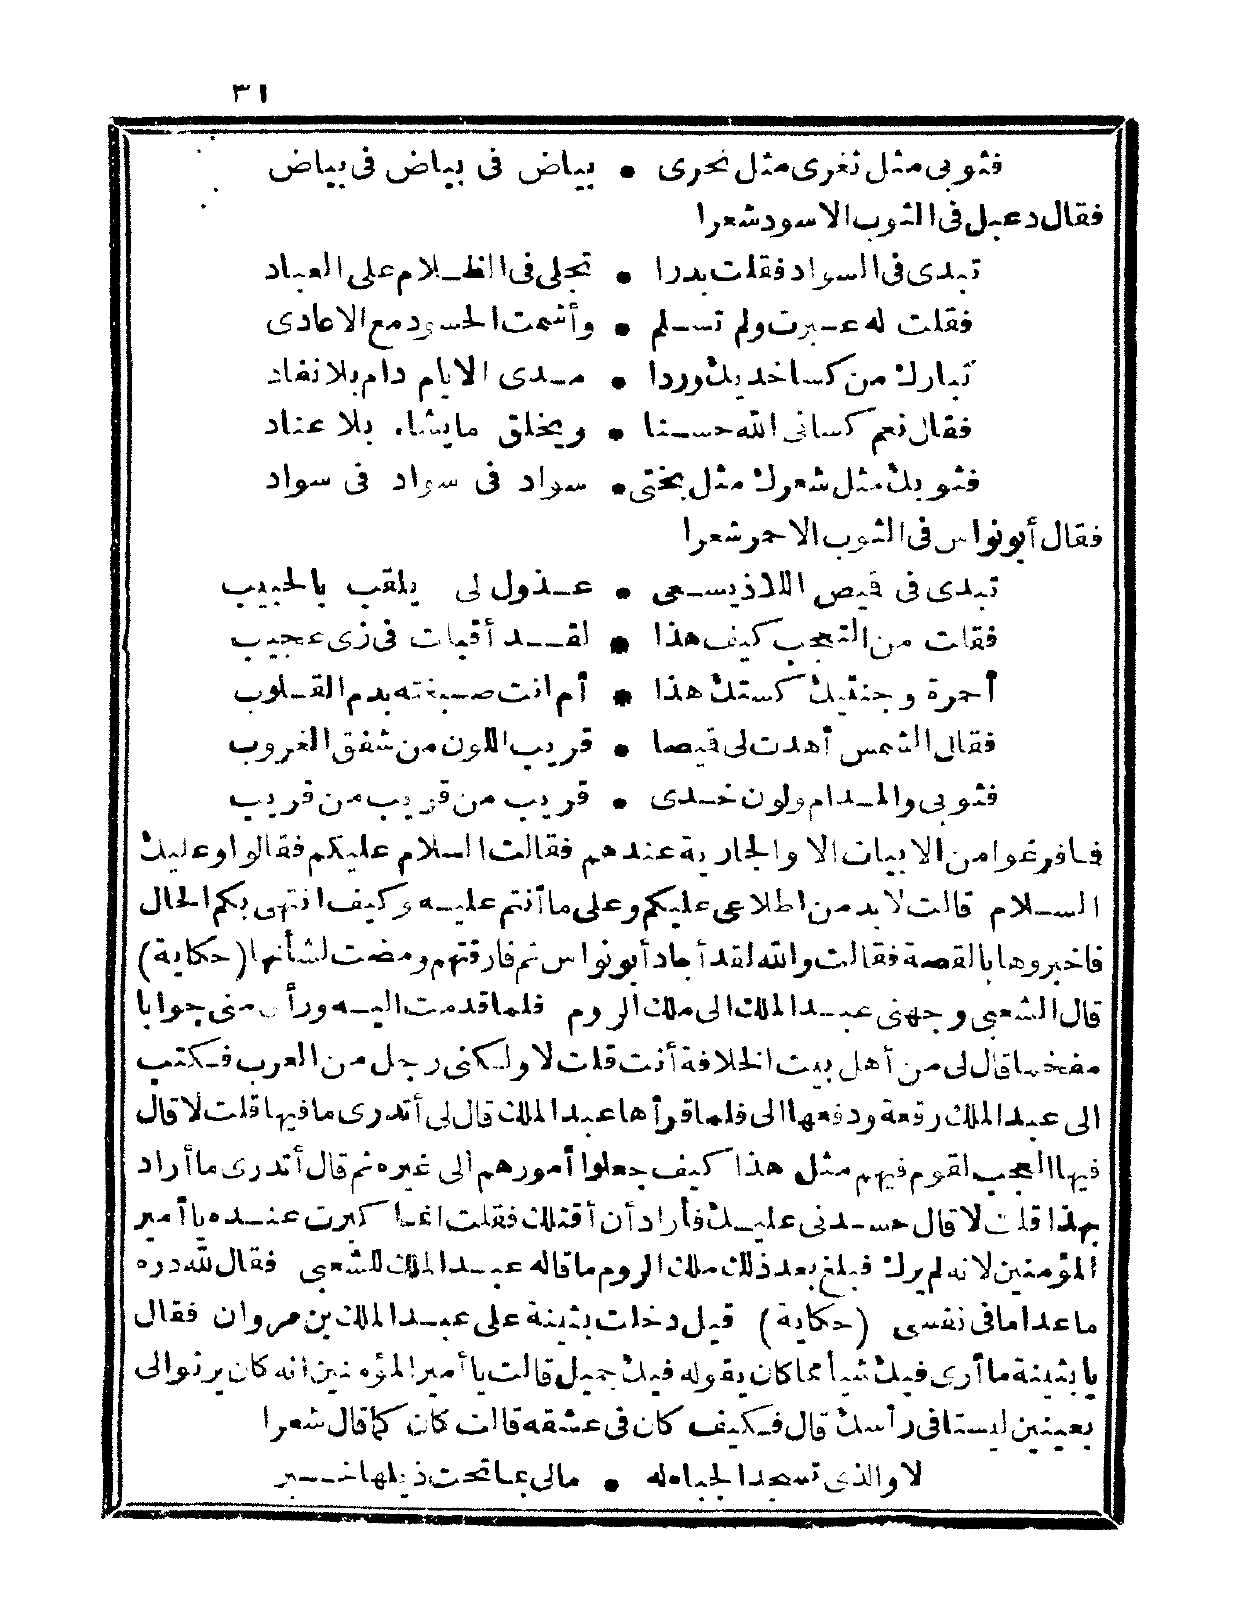 ٣١
فثوبى مثل ثغرى مثل نحرى • بياض فى بياض فى بياض
فقال دعبل فى الثوب الاسود شعرا
تبدى فى السواد فقلت بدرا • تجلى فى الظلام على العباد
فقلت له عبرت ولم تسلم • وأشمت الحسود مع الاعادى
تبارك من كسا خديك وردا • مدى الايام دام بلا نفاد
فقال نعم كسانى الله حسنا • ويخلق ما يشاء بلا عناد
فثوبك مثل شعرك مثل بختى • سواد فى سواد فى سواد
فقال أبو نواس فى الثوب الاحمر شعرا
تبدى فى قيص اللاذ يسعى • عذول لى يلقب بالحبيب
فقلت من التعجب كيف هذا • لقد أقبلت فى زى عجيب
أحمرة وجنتيك كستك هذا • أم انت صبغته بدم القلوب
فقال الشمس أهدت لى قيصا • قريب اللون من شفق الغروب
فثوبى والمدام ولون خدى • قريب من قريب من قريب
فافرغوا من الابيات الا والجارية عندهم فقالت السلام عليكم فقالوا وعليك
السلام قالت لابد من اطلاعى عليكم وعلى ما أنتم عليه وكيف انتهى بكم الحال
فاخبروها بالقصة فقالت والله لقد أجاد أبو نواس ثم فارقتهم ومضت لشأنها (حكاية)
قال الشعبى وجهنى عبد الملك الى ملك الروم فلما قدمت اليه ورأى منى جوابا
مفخما قال لى من أهل بيت الخلافة أنت قلت لا ولكنى رجل من العرب فكتب
الى عبد الملك رقعة ودفعها الى فلما قرأها عبد الملك قال لى أتدرى ما فيها قلت لا قال
فيها العجب لقوم فيهم مثل هذا كيف جعلوا أمورهم الى غيره ثم قال أتدرى ما أراد
بهذا قلت لا قال حسدنى عليك فأراد أن أقتلك فقلت انما كبرت عنده يا أمير
المؤمنين لانه لم يرك فبلغ بعد ذلك ملك الروم ما قاله عبد الملك للشعبى فقال لله دره
ما عدا ما فى نفسى (حكاية) قيل دخلت بثينة على عبد الملك بن مروان فقال
يا بثينة ما أرى فيك شيأ مما كان يقوله فيك جميل قالت يا أمير المؤمنين انه كان يرنو الى
بعينين ليستا فى رأسك قال فكيف كان فى عشقه قالت كان كما قال شعرا
لا والذى تسجد الجباه له • مالى بما تحت ذيلها خبر